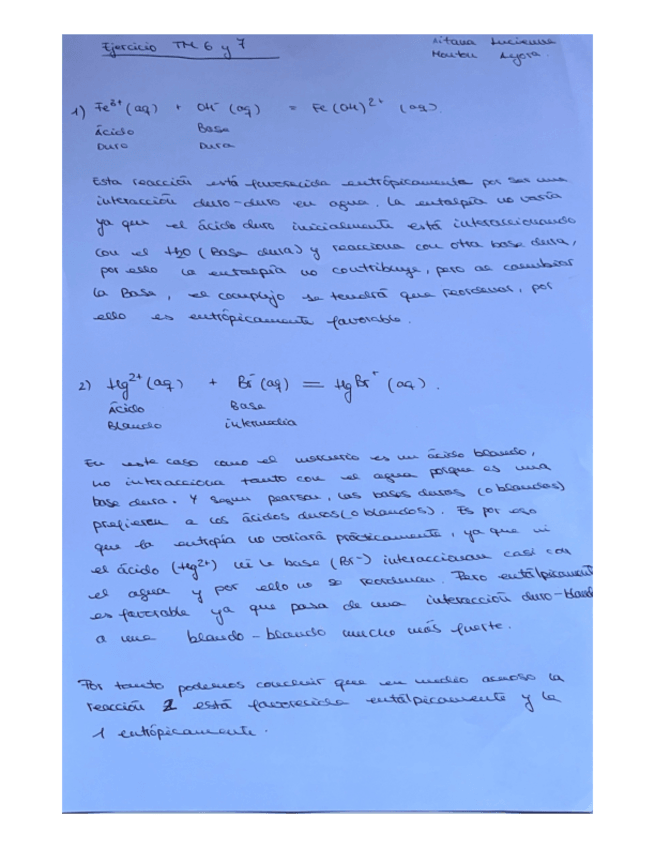 Ejercicio TM 6 y 7
Aitana Lucienne
Montou Lyora
1) Fe³⁺(aq) + OH⁻(aq) = Fe(OH)²⁺ (aq).
Ácido Base
Duro Dura
Esta reacción está favorecida entrópicamente por ser una
interacción duro-duro en agua. La entalpía no varía
ya que el ácido duro inicialmente está interaccionando
con el H₂O (Base dura) y reacciona con otra base dura,
por ello la entalpía no contribuye, pero al cambiar
la Base, el complejo se tendrá que reordenar, por
ello es entrópicamente favorable.
2) Hg²⁺(aq) + Br⁻(aq) = HgBr⁺(aq).
Ácido Base
Blando intermedia
En este caso como el mercurio es un ácido blando,
no interacciona tanto con el agua porque es una
base dura. Y segun pearson, las bases duras (o blandas)
prefieren a los ácidos duros (o blandos). Es por eso
que la entropía no variará prácticamente, ya que ni
el ácido (Hg²⁺) ni la base (Br⁻) interaccionan casi con
el agua y por ello no se reordenan. Pero entálpicament
es favorable ya que pasa de una interacción duro-bland
a una blando-blando mucho más fuerte.
Por tanto podemos concluir que en medio acuoso la
reacción 2 está favorecida entálpicamente y la
1 entrópicamente.